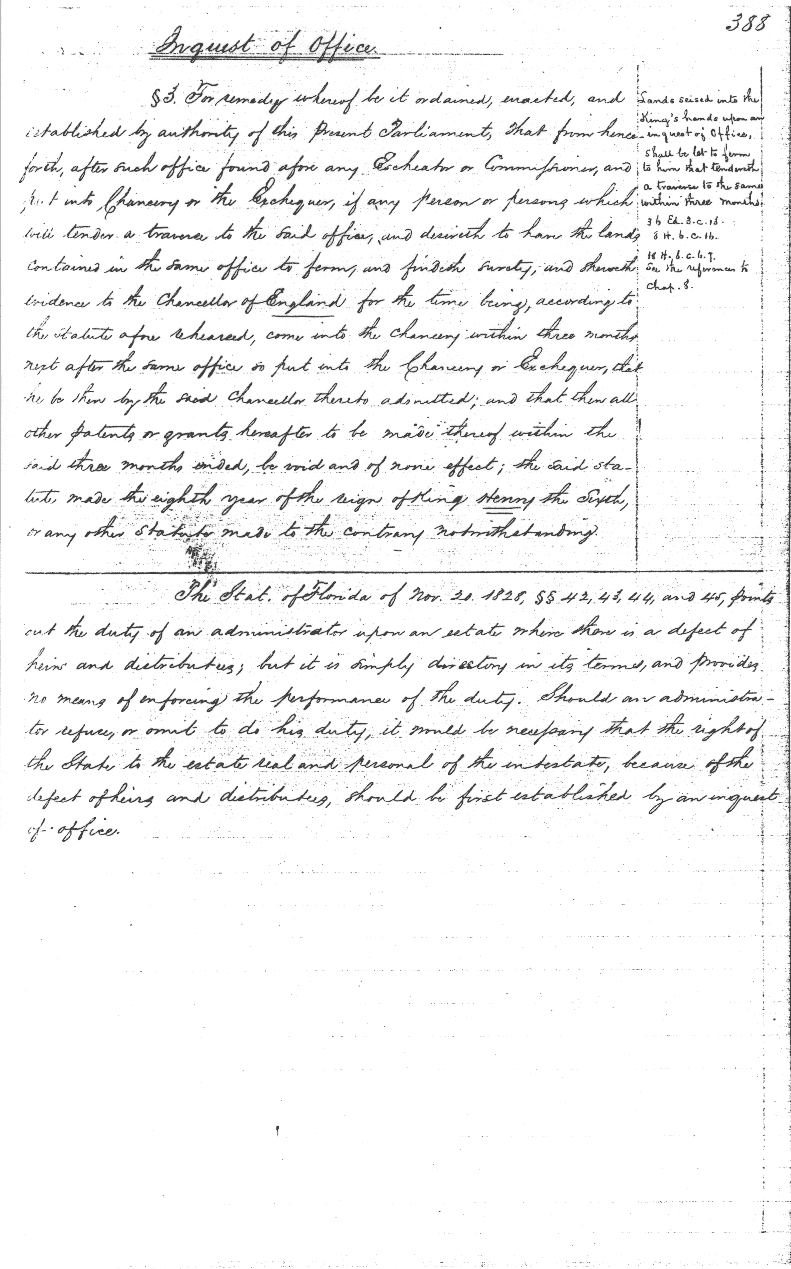 388
Inquest of Office.
§3. For remedy whereof be it ordained, enacted, and
established by authority of this Present Parliament, that from hence-
forth, after such office found afore any Escheator or Commissioner, and
put into Chancery or the Exchequer, if any person or persons which
will tender a traverse to the said office, and desireth to have the lands
contained in the same office to ferm, and findeth surety, and sheweth
evidence to the Chancellor of England for the time being, according to
the statute afore rehearsed, come into the Chancery within three months
next after the same office so put into the Chancery or Exchequer, that
he be then by the said Chancellor thereto admitted; and that then all
other patents or grants hereafter to be made thereof within the
said three months ended, be void and of none effect; the said sta-
tute made the eighth year of the reign of King Henry the Sixth,
or any other Statute made to the contrary notwithstanding.
Lands seised into the
King's hands upon an
inquest of Office,
shall be let to ferm
to him that tendereth
a traverse to the same
within three months.
36 Ed. 3. c. 13.
8 H. 6. c. 16.
18 H. 6. c. 6. 7.
See the references to
Chap. 8.
The Stat. of Florida of Nov. 20. 1828, §§ 42, 43, 44, and 45, points
out the duty of an administrator upon an estate where there is a defect of
heirs and distributees; but it is simply directory in its terms, and provides
no means of enforcing the performance of the duty. Should an administra-
tor refuse, or omit to do his duty, it would be necessary that the right of
the State to the estate real and personal of the intestate, because of the
defect of heirs and distributees, should be first established by an inquest
of office.